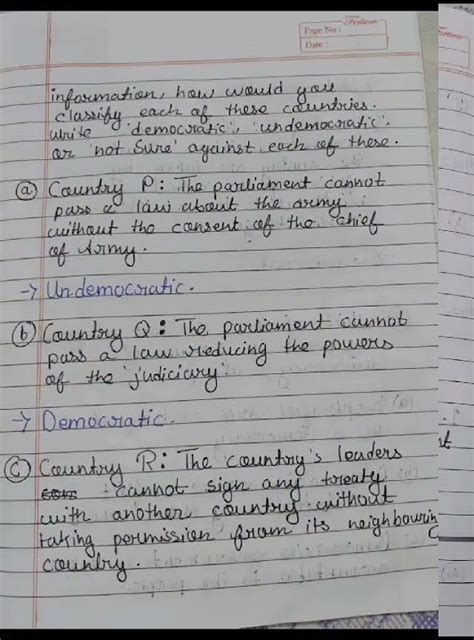 Page No :
Date :
information, how would you
classify each of these countries.
write 'democratic', 'undemocratic'
or 'not sure' against each of these.
(a) Country P: The parliament cannot
pass a law about the army
without the consent of the chief
of Army.
→ Undemocratic.
(b) Country Q: The parliament cannot
pass a law reducing the powers
of the judiciary.
→ Democratic.
(c) Country R: The country's leaders
cannot sign any treaty
with another country without
taking permission from its neighbourin
country.